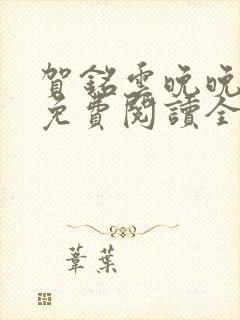 賀銘雲晚晚
免費閱讀全
葦葉